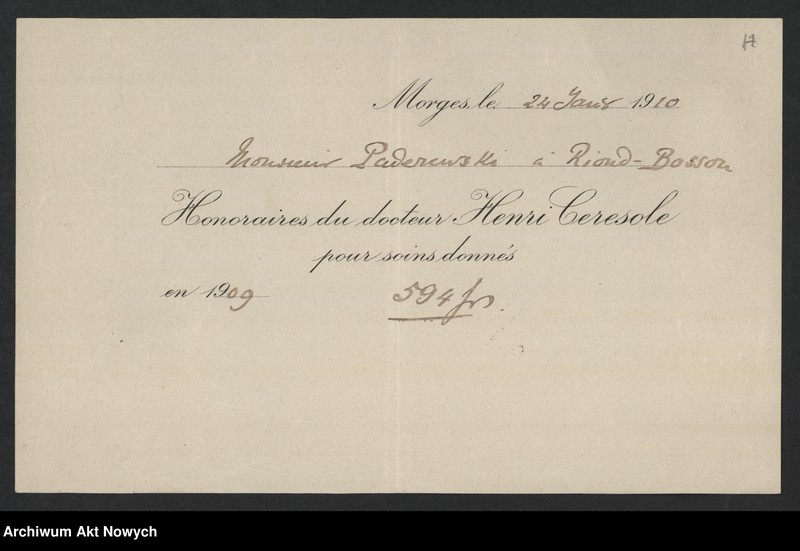 Morges, le 24 Janv 1910
Monsieur Paderewski à Riond-Bosson
Honoraires du docteur Henri Ceresole
pour soins donnés
en 1909 594 frs.
Archiwum Akt Nowych